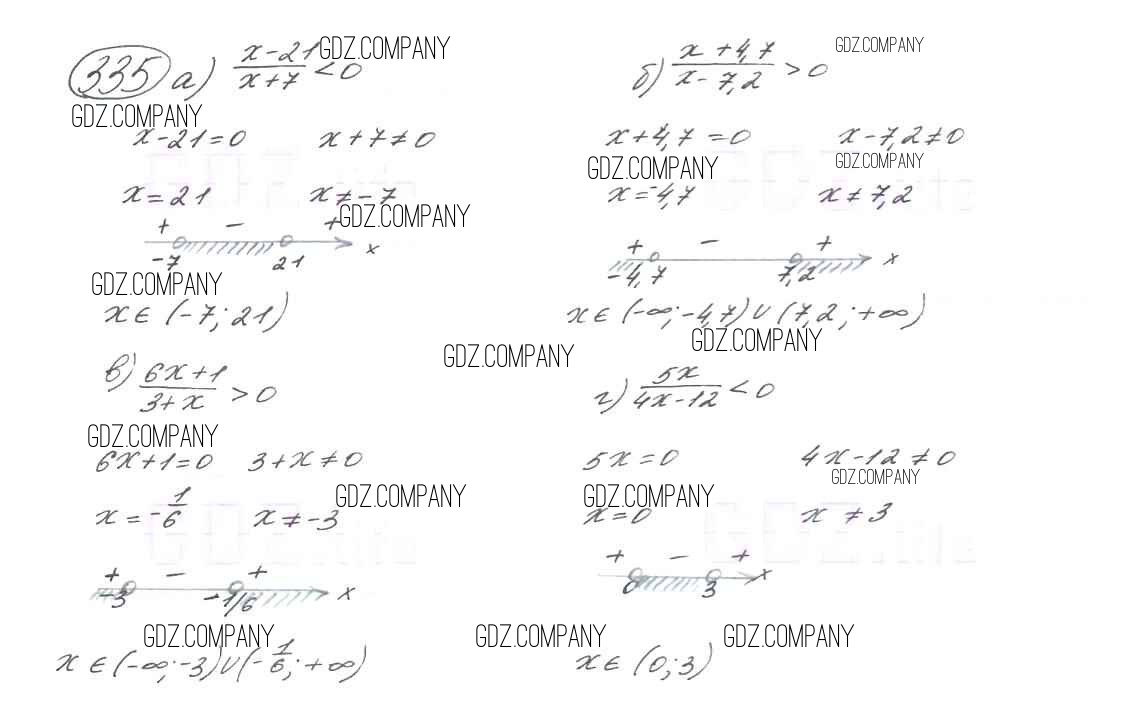 335 а) (x-21)/(x+7) < 0
GDZ.COMPANY
GDZ.COMPANY
x-21=0 x+7≠0
x=21 x≠-7
GDZ.COMPANY
+ - +
-7 21 x
GDZ.COMPANY
x∈(-7;21)
б) (x+4,7)/(x-7,2) > 0
GDZ.COMPANY
x+4,7=0 x-7,2≠0
GDZ.COMPANY GDZ.COMPANY
x=-4,7 x≠7,2
+ - +
-4,7 7,2 x
x∈(-∞;-4,7)∪(7,2;+∞)
GDZ.COMPANY
GDZ.COMPANY
в) (6x+1)/(3+x) > 0
GDZ.COMPANY
6x+1=0 3+x≠0
GDZ.COMPANY
x=-1/6 x≠-3
+ - +
-3 -1/6 x
GDZ.COMPANY
x∈(-∞;-3)∪(-1/6;+∞)
г) 5x/(4x-12) < 0
5x=0 4x-12≠0
GDZ.COMPANY
GDZ.COMPANY
x=0 x≠3
+ - +
0 3 x
GDZ.COMPANY GDZ.COMPANY
x∈(0;3)